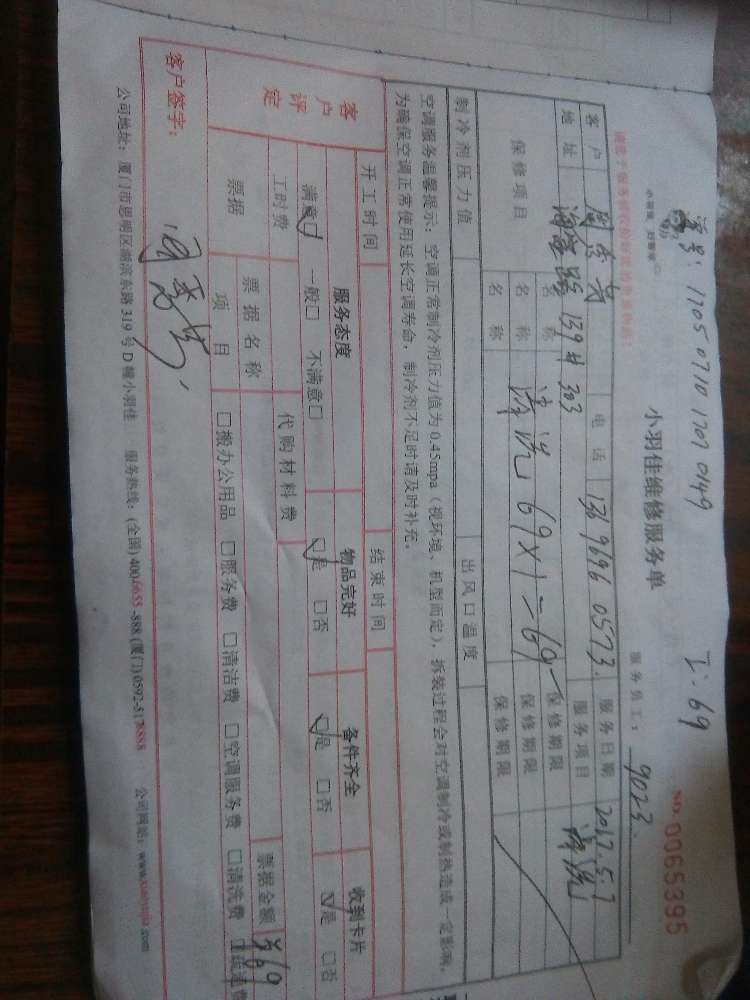 单号：1705 0710 1707 0149
工：69
小羽佳维修服务单
NO. 0065395
服务员工：9023
客户 电话 139696 0573 服务日期 2017.5.7
地址 139# 303 服务项目 清洗
保修项目 名称 清洗 69×1=69 保修期限
名称 保修期限
名称 保修期限
制冷剂压力值 出风口温度
空调服务温馨提示：空调正常制冷剂压力值为0.45mpa（视环境、机型而定），拆装过程会对空调制冷或制热造成一定影响，
为确保空调正常使用延长空调寿命，制冷剂不足时请及时补充。
开工时间 结束时间
客户评定 服务态度 物品完好 备件齐全 收到卡片
满意☑ 一般□ 不满意□ ☑是 □否 ☑是 □否 ☑是 □否
工时费 代购材料费
票据 票据名称 票据金额 69
项目 □搬办公用品 □服务费 □清洁费 □空调服务费 □清洗费
客户签字：
公司地址：厦门市思明区湖滨东路319号D幢小羽佳 服务热线：(全国)400-6655-888 (厦门)0592-5178888 公司网站：www.xiaoyujia.com